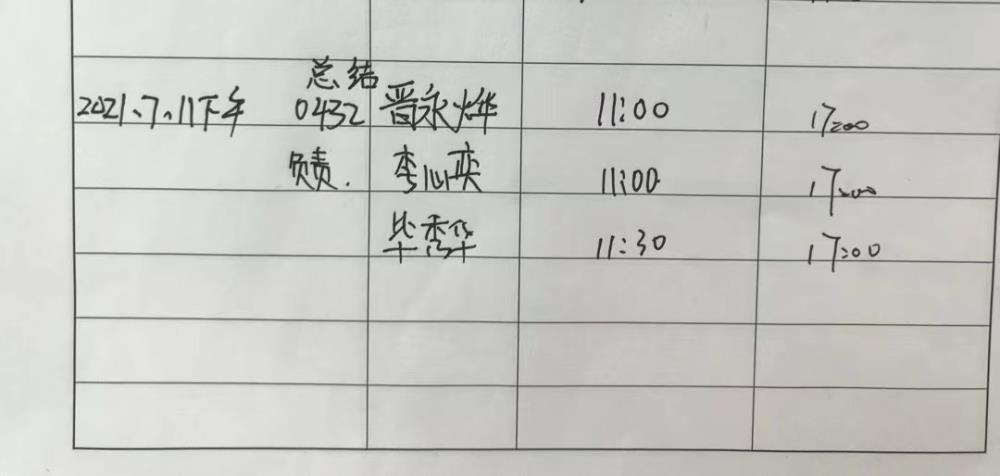 总结
2021.7.11下午 0432 晋永烨 11:00 17:00
负责. 李心奕 11:00 17:00
毕秀华 11:30 17:00